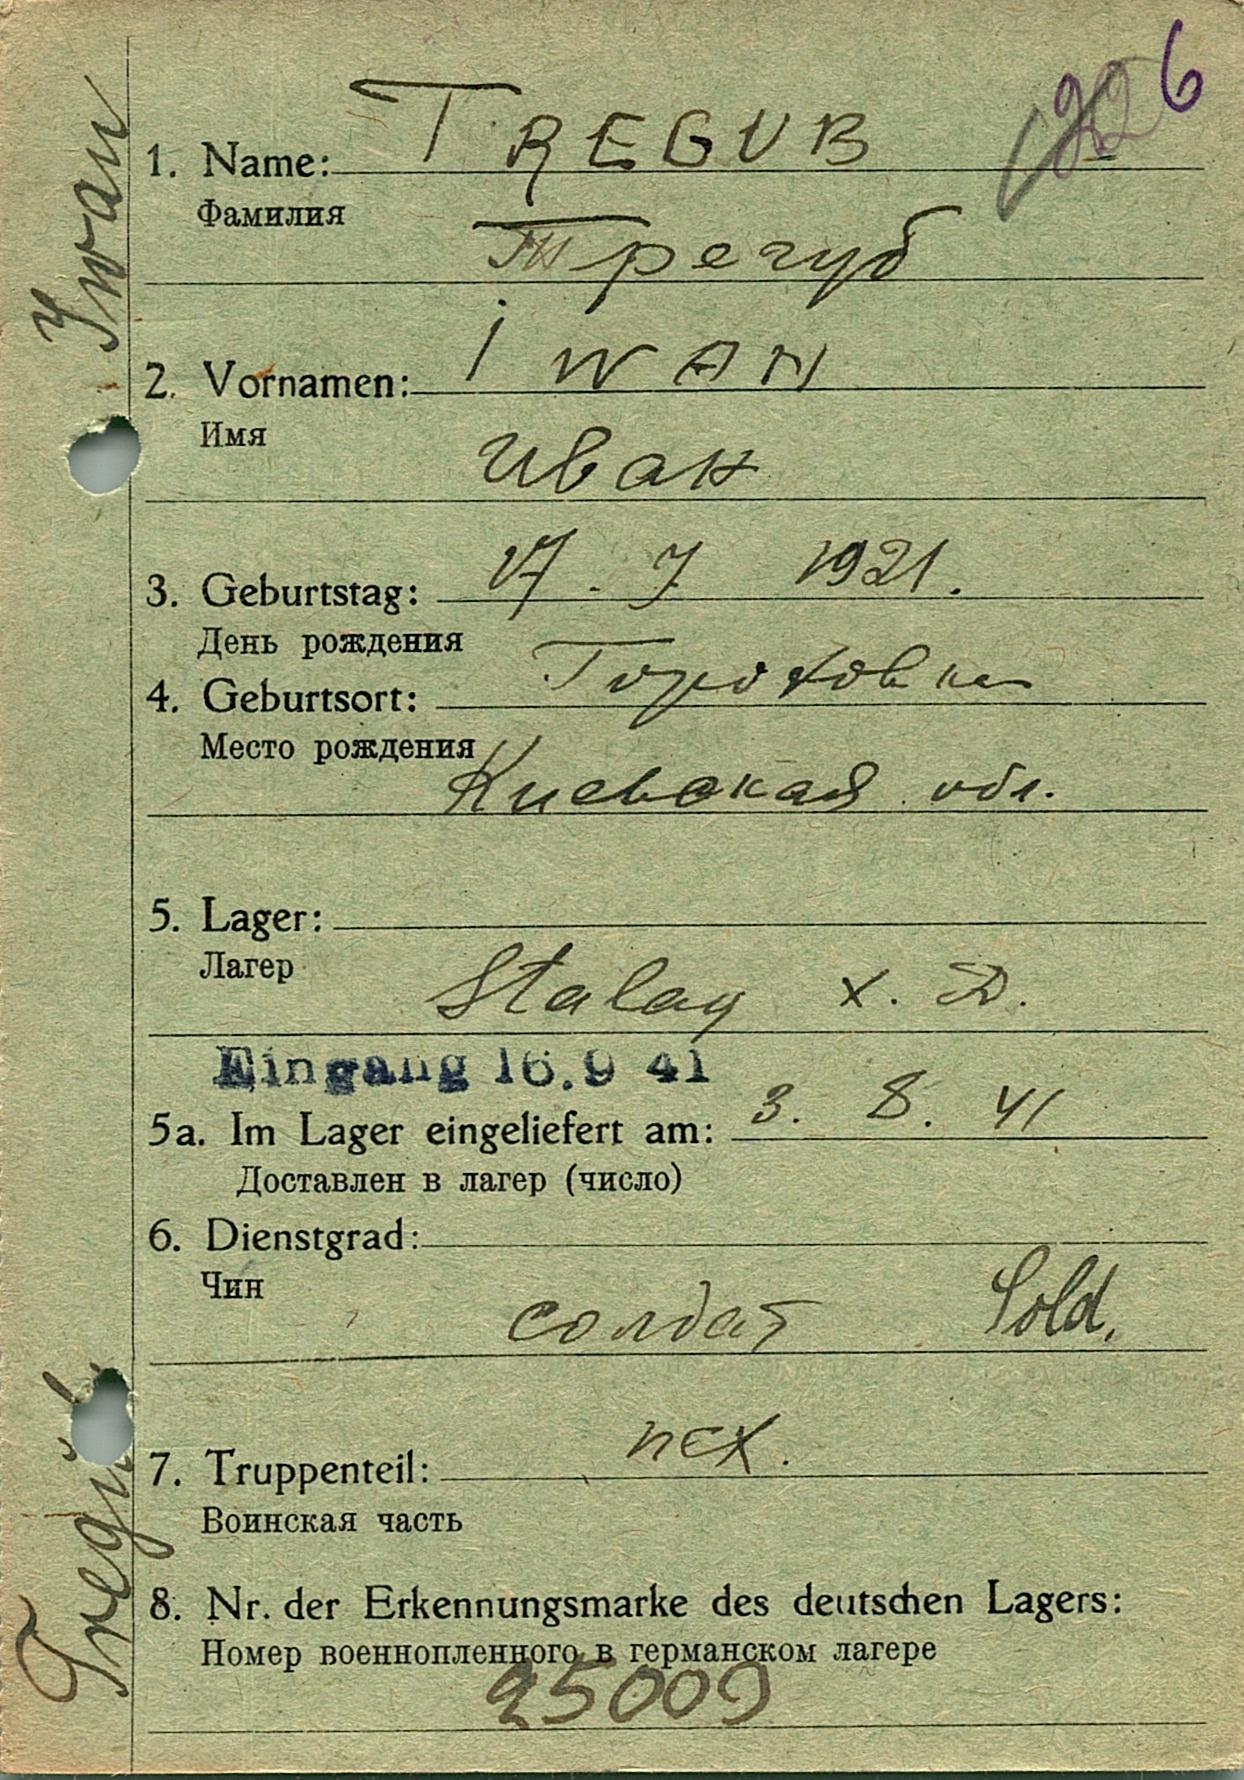 6
1. Name: TREGUB
Фамилия
Трегуб
2. Vornamen: iWAN
Имя
Иван
3. Geburtstag: 17. 7 1921.
День рождения
4. Geburtsort: Гороховка
Место рождения
Киевская обл.
5. Lager:
Лагер
Stalag X. D.
Eingang 16.9 41
5a. Im Lager eingeliefert am: 3. 8. 41
Доставлен в лагер (число)
6. Dienstgrad:
Чин
солдат Sold.
7. Truppenteil: пех.
Воинская часть
8. Nr. der Erkennungsmarke des deutschen Lagers:
Номер военнопленного в германском лагере
25009
Iwan